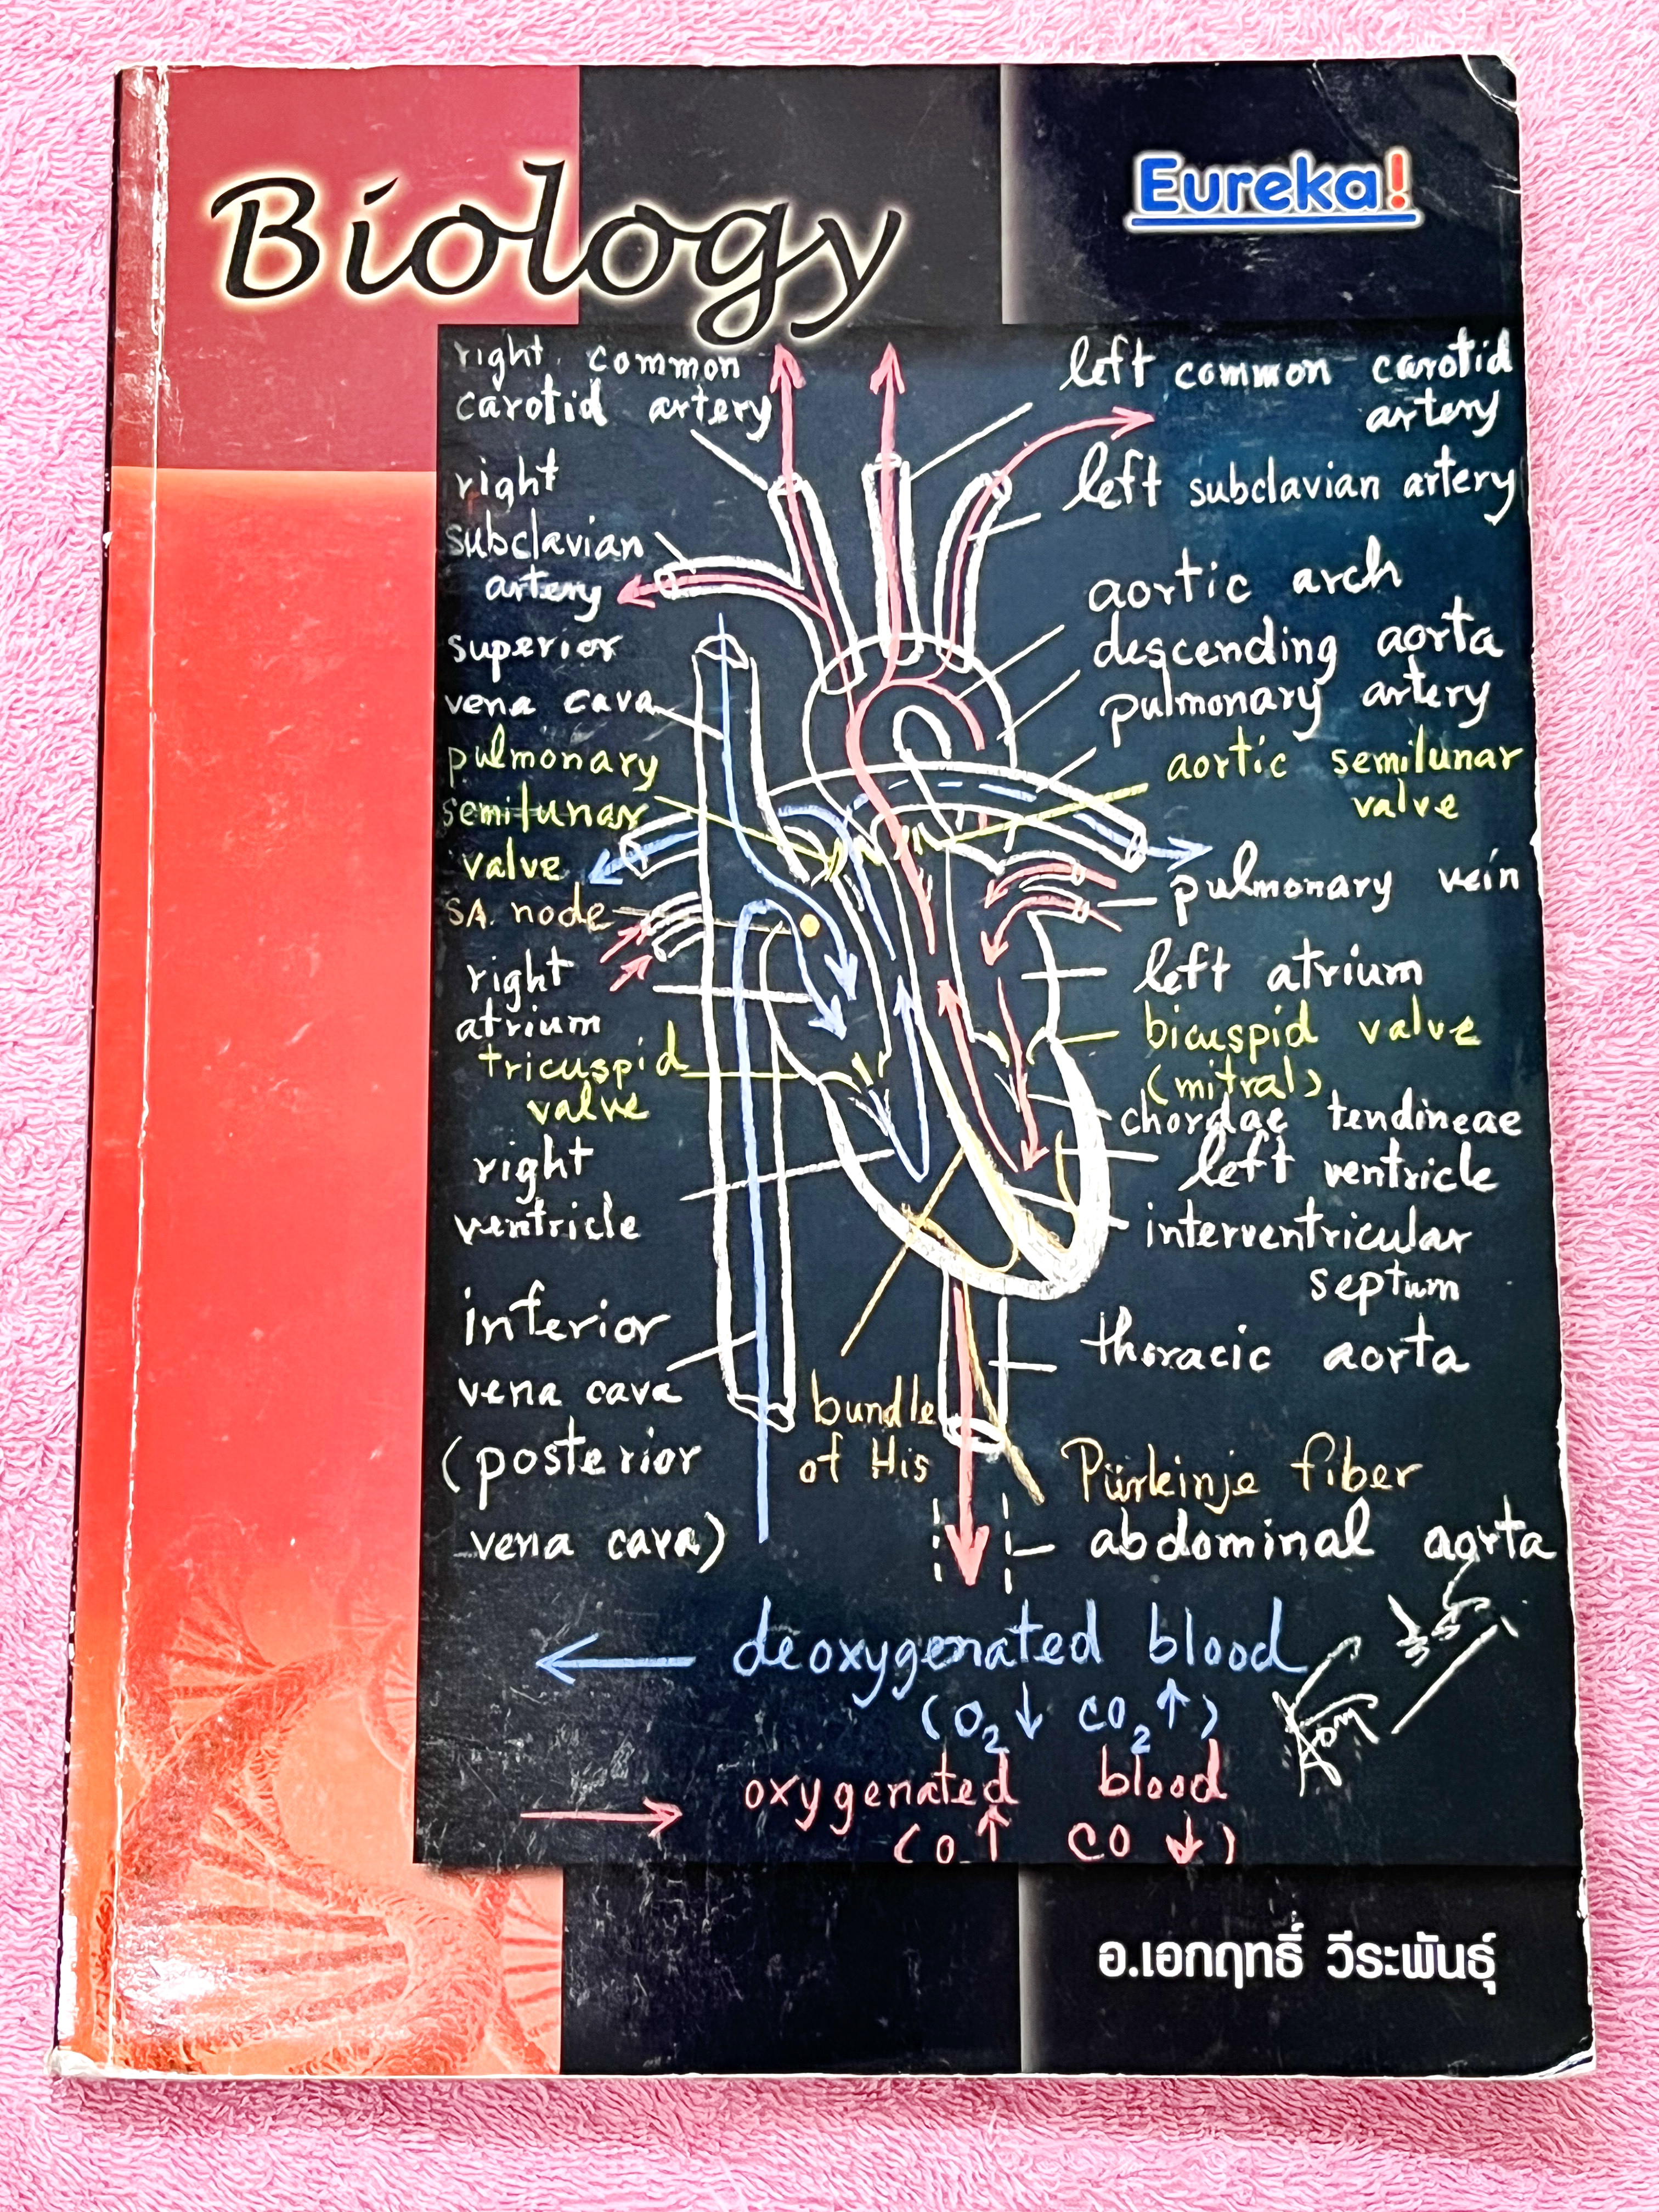 Biology
Eureka!
right common
carotid artery
right
subclavian
artery
superior
vena cava
pulmonary
semilunar
valve
SA. node
right
atrium
tricuspid
valve
right
ventricle
inferior
vena cava
(posterior
vena cava)
left common carotid
artery
left subclavian artery
aortic arch
descending aorta
pulmonary artery
aortic semilunar
valve
pulmonary vein
left atrium
bicuspid valve
(mitral)
chordae tendineae
left ventricle
interventricular
septum
thoracic aorta
bundle
of His
Pürkinje fiber
abdominal aorta
deoxygenated blood
(O₂↓ CO₂↑)
oxygenated blood
(O ↑ CO ↓)
อ.เอกฤทธิ์ วีระพันธุ์